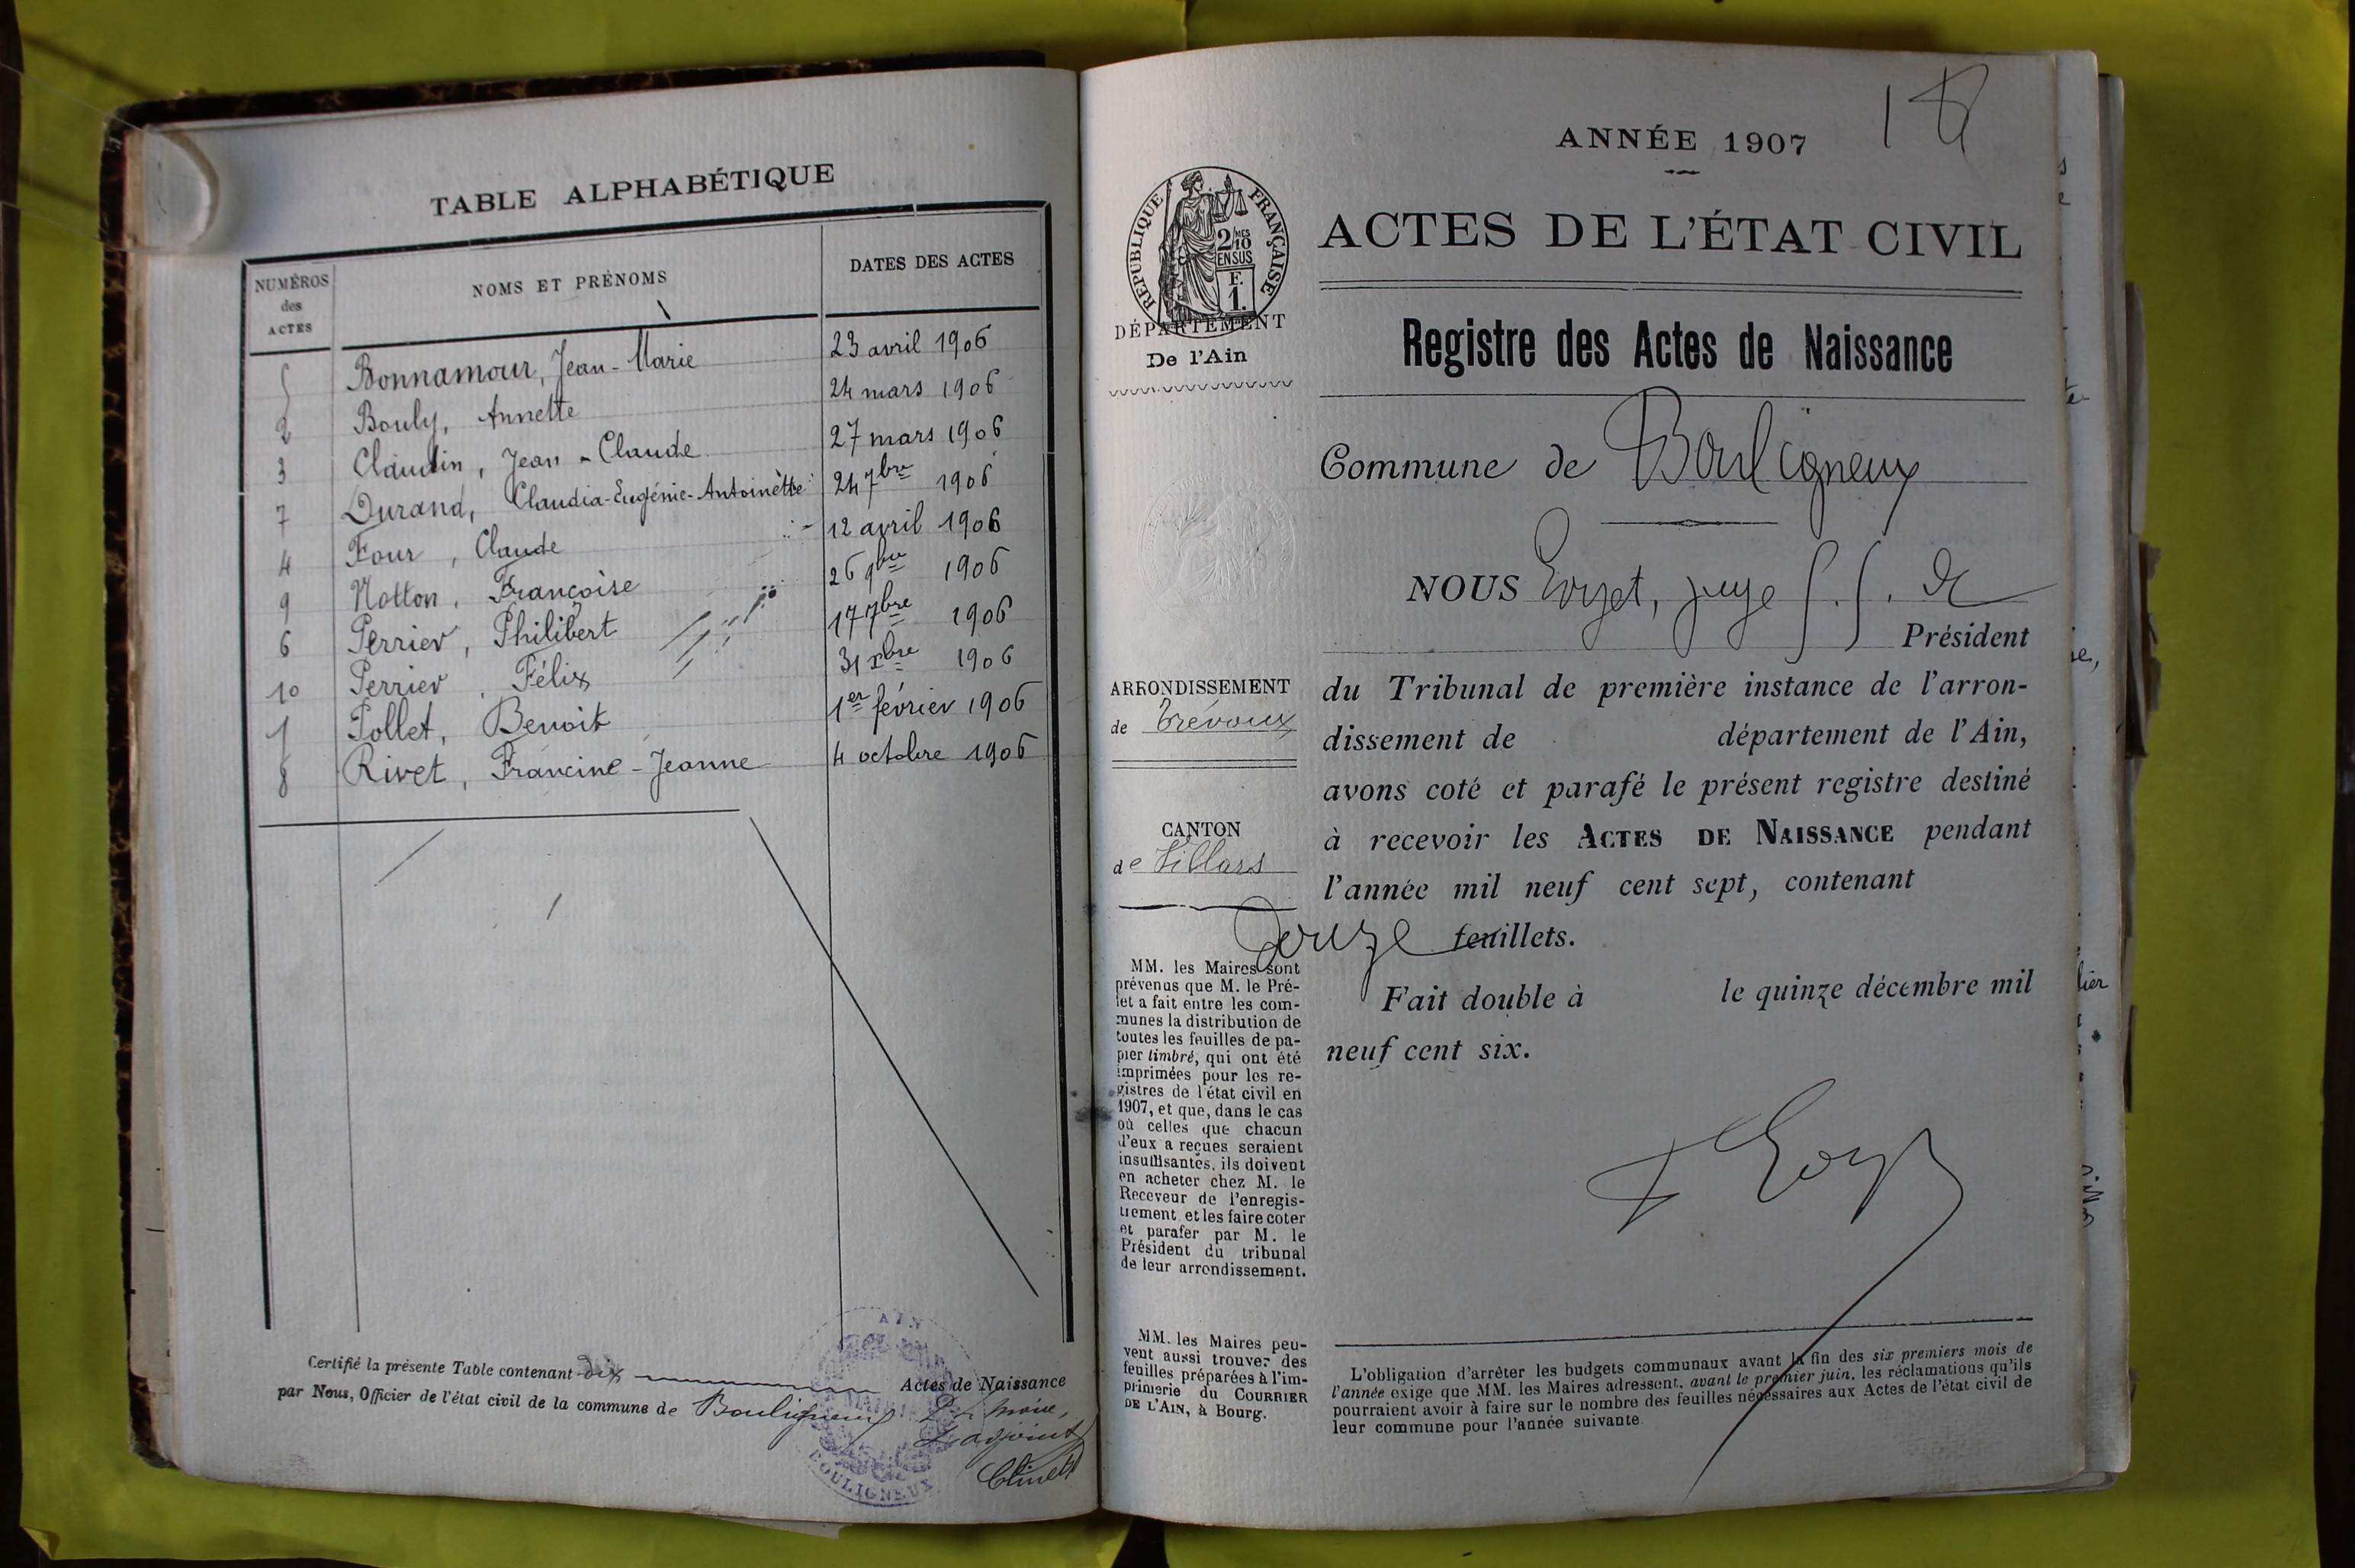 TABLE ALPHABÉTIQUE
NUMÉROS des ACTES NOMS ET PRÉNOMS DATES DES ACTES
5 Bonnamour, Jean-Marie 23 avril 1906
2 Bouly, Annette 24 mars 1906
3 Claudin, Jean-Claude 27 mars 1906
7 Durand, Claudia-Eugénie-Antoinètte 24 7bre 1906
4 Four, Claude 12 avril 1906
9 Notton, Françoise 26 9bre 1906
6 Perrier, Philibert 17 7bre 1906
10 Perrier, Félix 31 xbre 1906
1 Pollet, Benoit 1er février 1906
8 Rivet, Francine-Jeanne 4 octobre 1906
Certifié la présente Table contenant dix Actes de Naissance
par Nous, Officier de l'état civil de la commune de Bouligneux
L'adjoint
AIN
MAIRIE
BOULIGNEUX
ANNÉE 1907
ACTES DE L'ÉTAT CIVIL
RÉPUBLIQUE FRANÇAISE
2/10 MES
EN SUS
F.
1.
DÉPARTEMENT
De l'Ain
Registre des Actes de Naissance
Commune de Bouligneux
NOUS juge f.f. de
Président
ARRONDISSEMENT
de Trévoux
du Tribunal de première instance de l'arron-
dissement de département de l'Ain,
avons coté et parafé le présent registre destiné
à recevoir les ACTES DE NAISSANCE pendant
l'année mil neuf cent sept, contenant
CANTON
de Villars
Douze feuillets.
Fait double à le quinze décembre mil
neuf cent six.
MM. les Maires sont
prévenus que M. le Pré-
fet a fait entre les com-
munes la distribution de
toutes les feuilles de pa-
pier timbré, qui ont été
imprimées pour les re-
gistres de l'état civil en
1907, et que, dans le cas
où celles que chacun
d'eux a reçues seraient
insuffisantes, ils doivent
en acheter chez M. le
Receveur de l'enregis-
trement et les faire coter
et parafer par M. le
Président du tribunal
de leur arrondissement.
MM. les Maires peu-
vent aussi trouver des
feuilles préparées à l'im-
primerie du COURRIER
DE L'AIN, à Bourg.
L'obligation d'arrêter les budgets communaux avant la fin des six premiers mois de
l'année exige que MM. les Maires adressent, avant le premier juin, les réclamations qu'ils
pourraient avoir à faire sur le nombre des feuilles nécessaires aux Actes de l'état civil de
leur commune pour l'année suivante.